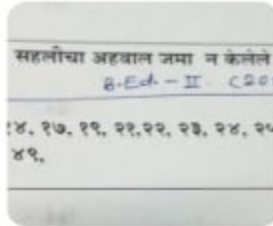 सहलीचा अहवाल जमा न केलेले
B.Ed. - II (20
१४, १७, १९, २१,२२, २३, २४, २५
४९,